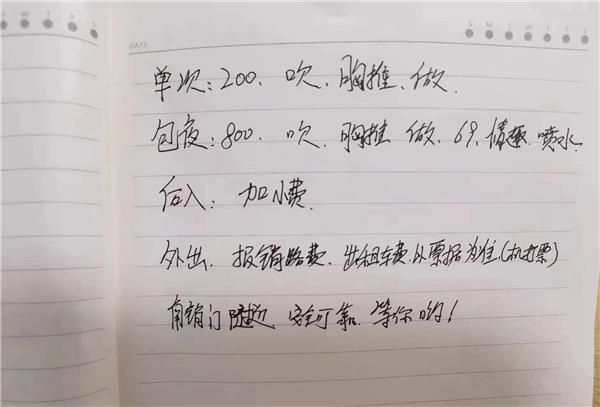 DATE
S M T W T F S
单次:200、吹、胸推、做、
包夜:800、吹、胸推 做、69、情趣、喷水、
后入: 加小费、
外出、报销路费、出租车费、以票据为准(机打票)
有销门 随边、安全可靠、等你哟!